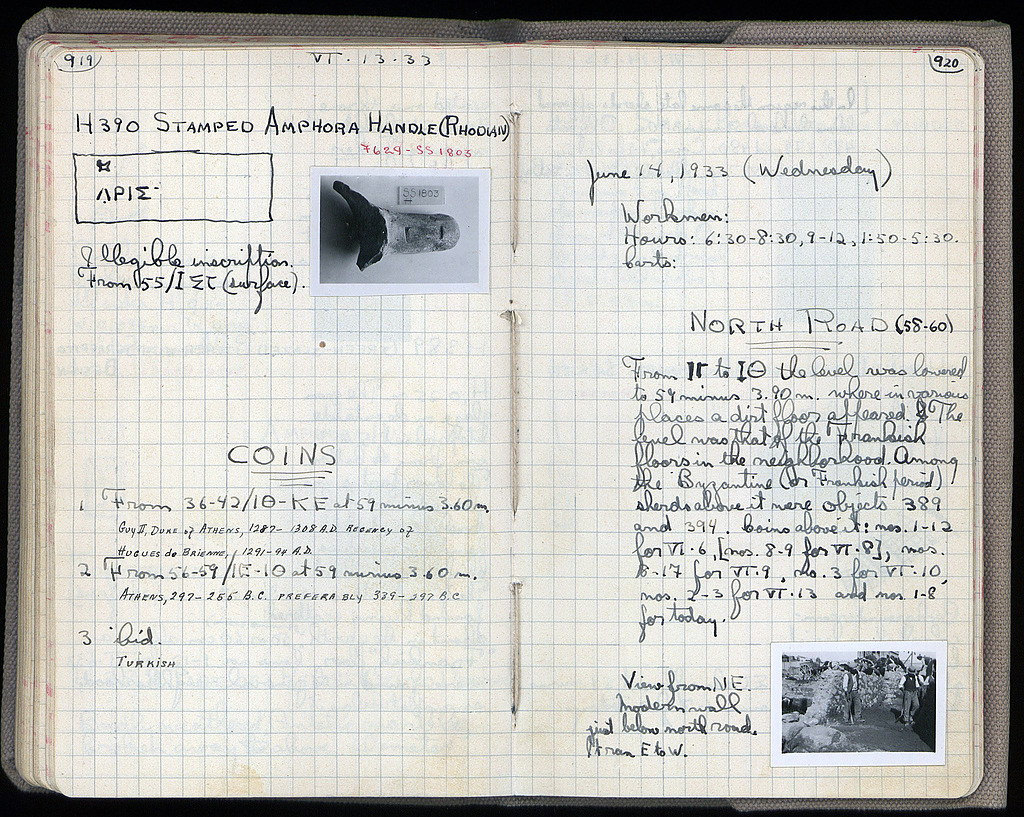 919
VI·13·33
H390 STAMPED AMPHORA HANDLE (RHODIAN)
7629-SS1803
ΑΡΙΣ
SS1803
Illegible inscription.
From 55/ΙΣΤ (surface).
COINS
1 From 36-42/ΙΘ-ΚΕ at 59 minus 3.60 m.
GUY II, DUKE of ATHENS, 1287-1308 A.D. REGENCY of
HUGUES de BRIENNE, 1291-94 A.D.
2 From 56-59/ΙΕ-ΙΘ at 59 minus 3.60 m.
ATHENS, 297-255 B.C. PREFERABLY 339-297 B.C
3 ibid.
TURKISH
920
June 14, 1933 (Wednesday)
Workmen:
Hours: 6:30-8:30, 9-12, 1:50-5:30.
Carts:
NORTH ROAD (58-60)
From ΙΓ to ΙΘ the level was lowered
to 59 minus 3.90 m. where in various
places a dirt floor appeared. The
level was that of the Frankish
floors in the neighborhood. Among
the Byzantine (or Frankish period)
sherds above it were objects 389
and 394. Coins above it: nos. 1-12
for VI·6, [nos. 8-9 for VI·8], nos.
8-17 for VI·9, no. 3 for VI·10,
nos. 2-3 for VI·13 and nos. 1-8
for today.
View from N.E.
Modern wall
just below north road.
It ran E to W.